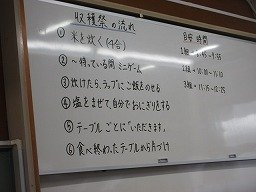 収穫祭の流れ
① 米を炊く(4合)
② 〜待っている間 ミニゲーム
③ 炊けたら、ラップにご飯をのせる
④ 塩をまぜて、自分でおにぎりをする
⑤ テーブルごとに「いただきます」
⑥ 食べ終わったテーブルから片づけ
目安 時間
1組→
2組→
3組→